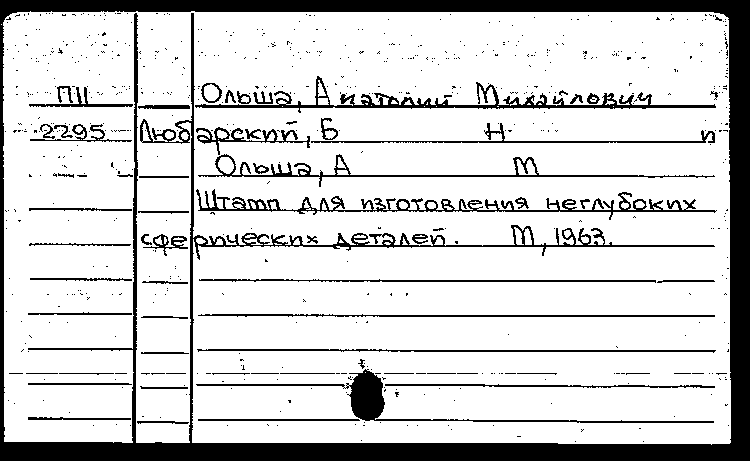 П11 Ольша, Анатолий Михайлович
2295 Любарский, Б Н п
Ольша, А М
Штамп для изготовления неглубоких
сферических деталей. М, 1963.